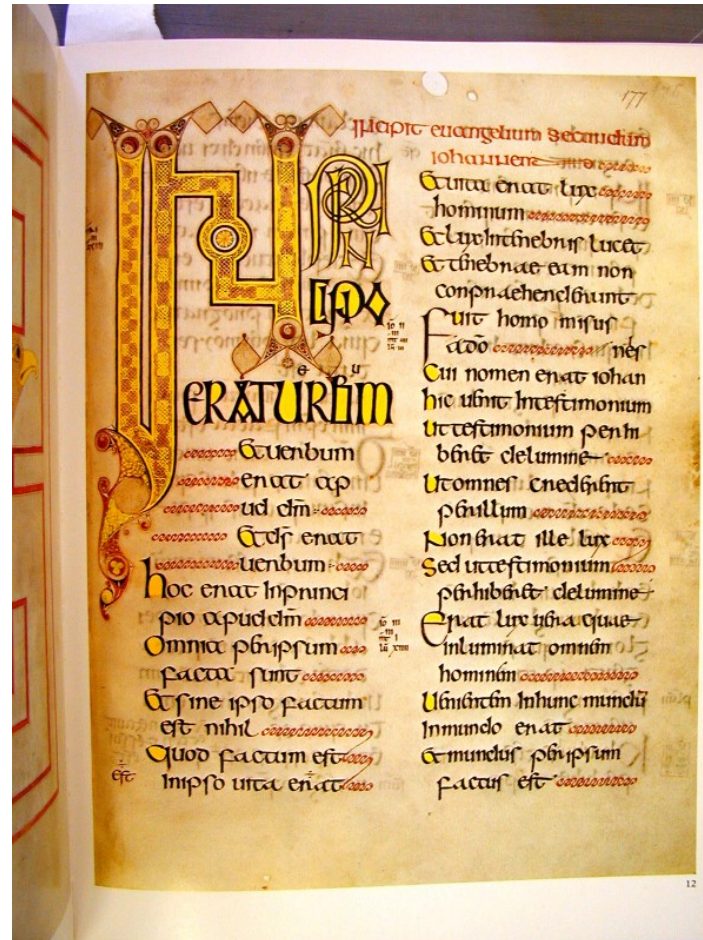 177
Incipit euangelium secundum
iohannem
IN PRIN
CIPIO
ERAT UERBUM
Et uerbum
erat ap
ud dm̄
Et ds̄ erat
uerbum
hoc erat Inprinci
pio apud dm̄
Omnia per ipsum
facta sunt
Et sine ipso factum
est nihil
Quod factum est
est
Inipso uita erat
Et uita erat lux
hominum
Et lux Intenebris lucet
Et tenebrae eam non
conpraehenderunt
Fuit homo misus
a dō nes
Cui nomen erat iohan
hic uenit Intestimonium
Ut testimonium perhi
beret de lumine
Ut omnes crederent
per illum
Non erat ille lux
Sed ut testimonium
perhiberet de lumine
Erat lux uera quae
inluminat omnem
hominem
Uenientem Inhunc mundū
Inmundo erat
Et mundus per ipsum
factus est
12